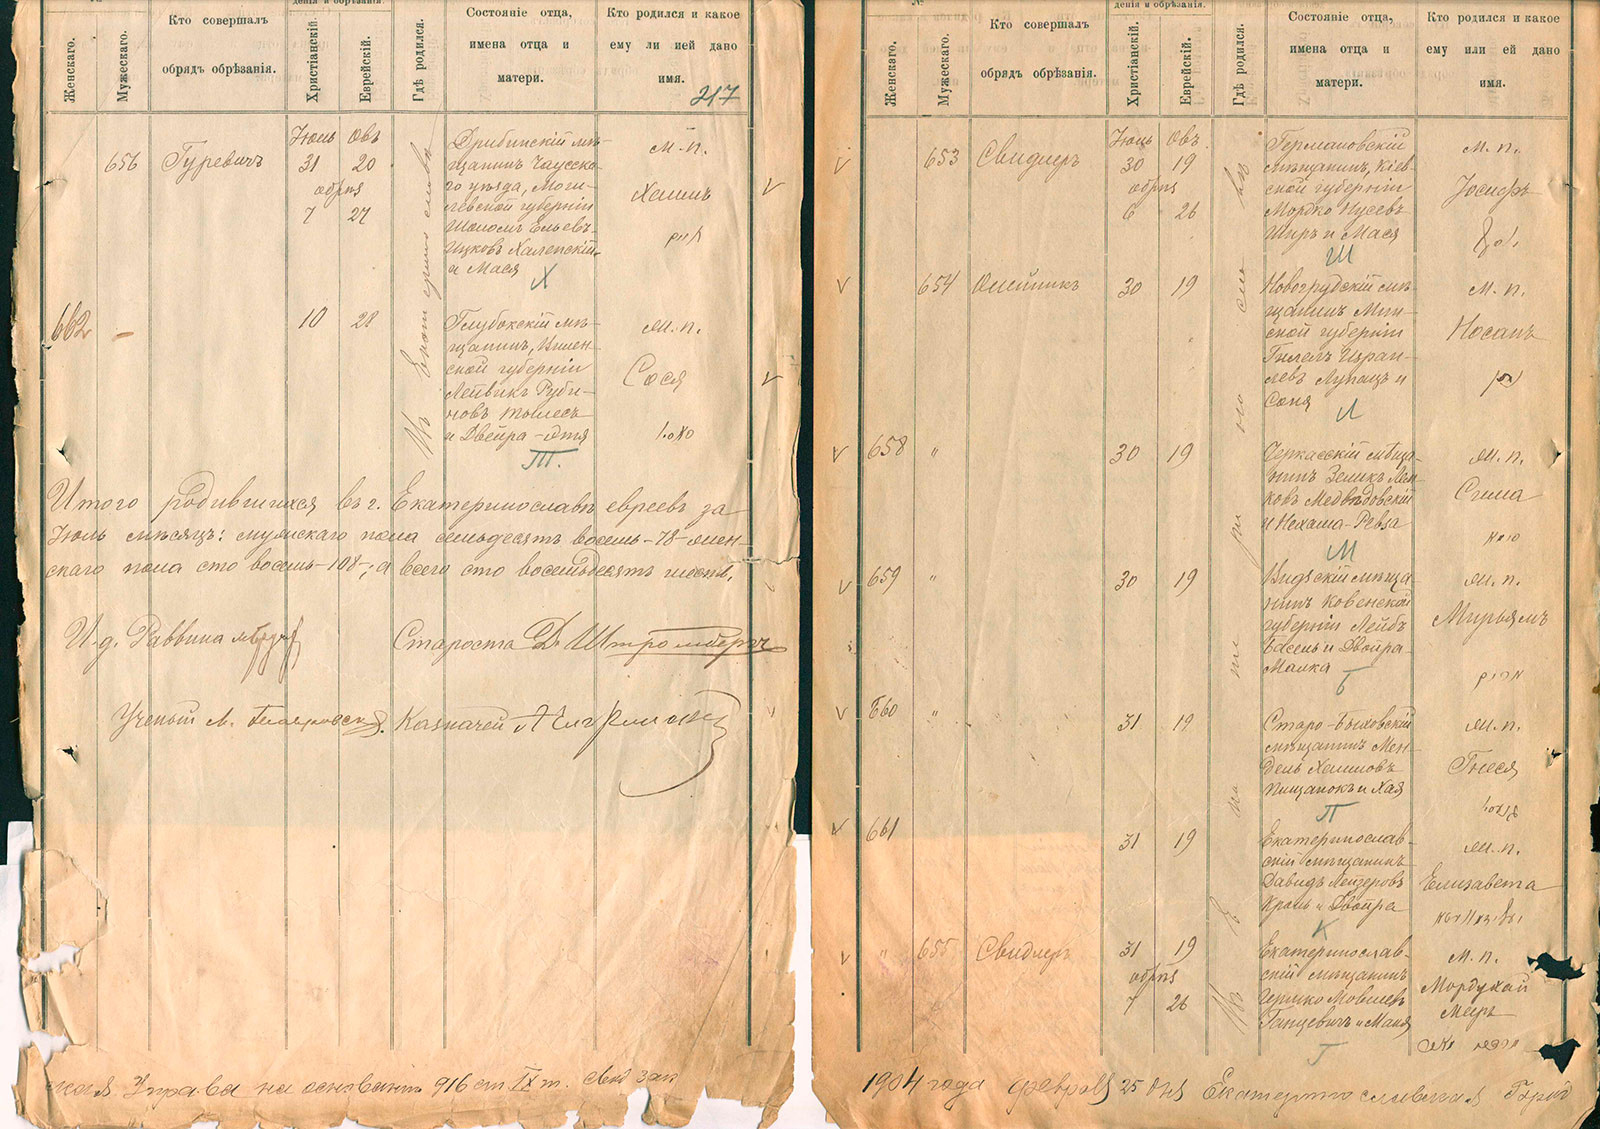 Женскаго.
Мужескаго.
Кто совершалъ
обрядъ обрѣзанія.
денія и обрѣзанія.
Христіанскій.
Еврейскій.
Гдѣ родился.
Состояніе отца,
имена отца и
матери.
Кто родился и какое
ему ли ией дано
имя.
217
656 Гуревичъ
Іюль Овъ
31 20
обрѣз
7 27
Дрибинскій мѣ-
щанинъ Чаусска-
го уѣзда, Моги-
левской губерніи
Шоломъ Ельевъ-
Ицковъ Халепскій
и Мася
Х
м. п.
Хаимъ
חיים
662
10 28
Глубокскій мѣ-
щанинъ, Вилен-
ской губерніи
Лейвикъ Руби-
новъ
и Двейра-Этя
Т.
ж. п.
Сося
Въ Екатеринославѣ
Итого родившихся въ г. Екатеринославѣ евреевъ за
Іюль мѣсяцъ: мужскаго пола семьдесятъ восемь-78-жен-
скаго пола сто восемь-108-, а всего сто восемьдесятъ шесть.
И. д. Раввина
Староста Д. Штромбергъ
Ученый М.
Казначей
ская Управа на основаніи 916 ст IX т.
Женскаго.
Мужескаго.
Кто совершалъ
обрядъ обрѣзанія.
денія и обрѣзанія.
Христіанскій.
Еврейскій.
Гдѣ родился.
Состояніе отца,
имена отца и
матери.
Кто родился и какое
ему или ей дано
имя.
653 Свидлеръ
Іюль Овъ
30 19
обрѣз
6 26
Германовскій
мѣщанинъ, Кіев-
ской губерніи
Мордко Нусевъ
Шпръ и Мася
Ш
м. п.
Іосифъ
654 Олейникъ
30 19
Новогрудскій мѣ-
щанинъ Мин-
ской губерніи
Гилелъ Израи-
левъ Лупацъ и
Соня
Л
м. п.
Носанъ
נתן
658 "
30 19
Черкасскій мѣща-
нинъ Зеликъ Лей-
ковъ Медвѣдовскій
и Нехама-Ревза
М
ж. п.
Сима
סימא
659 "
30 19
Видзскій мѣща-
нинъ Ковенской
губерніи Лейбъ
Басель и Двойра-
Малка
Б
ж. п.
Мирьямъ
מרים
660 "
31 19
Старо-Быховскій
мѣщанинъ Мен-
дель Хаимовъ
Пищанокъ и Хая
П
ж. п.
Гнеся
661
31 19
Екатеринослав-
скій мѣщанинъ
Давидъ Лейзеровъ
Кроль и Двойра
К
ж. п.
Елизавета
" 655 Свидлеръ
31 19
обрѣз
7 26
Екатеринослав-
скій мѣщанинъ
Гершко Мовшевъ
Ганцевичъ и Маня
Г
м. п.
Мордухай
Меиръ
Въ Екатеринославѣ
1904 года февраля 25 дня Екатеринославская Город